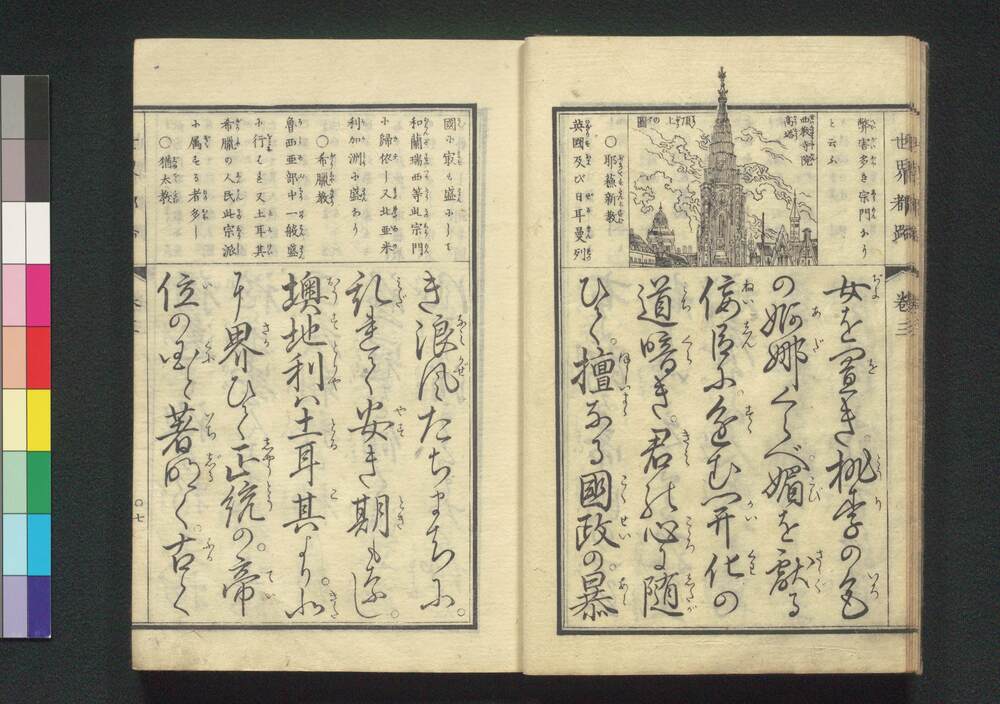 世界都路 巻三
弊害多き宗門なり
と云ふ
西教寺院
高塔
頂上の図
○耶蘇新教
英国及び日耳曼列
女を置き。桃李の色
の婀娜くらべ媚を献る
佞臣に進む開化の
道暗き。君の心に随
ひて。擅なる國政の暴
國に最も盛にして
和蘭瑞西等此宗門
に歸依し又北亜米
利加洲に盛あり
○希臘教
魯西亜部中一般盛
に行はる又土耳其
希臘の人民此宗派
に属する者多し
○猶太教
き浪風たちまちに。
乱れて安き期もなし。
墺地利ハ土耳其より。北
に界ひて正統の。帝
位の国と著明く。古く
○七